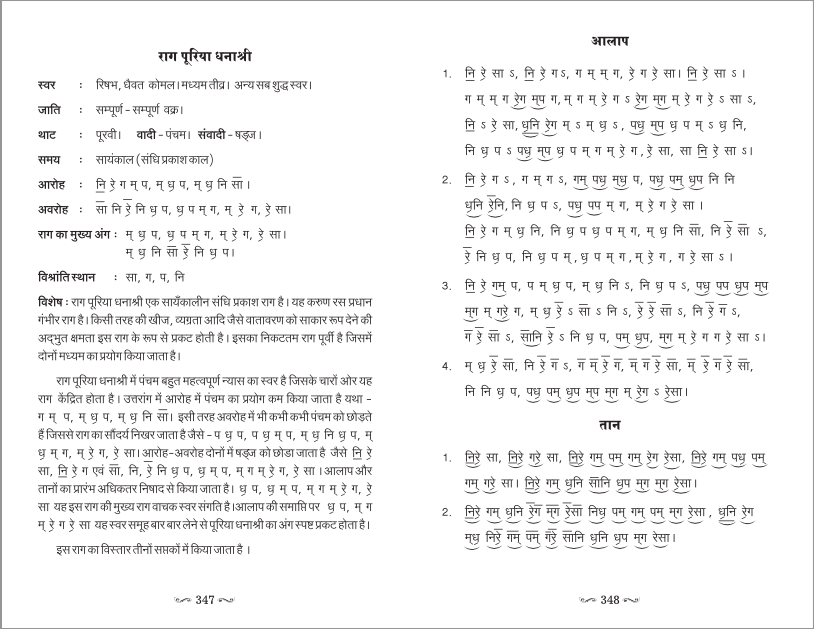 राग पूरिया धनाश्री
स्वर : रिषभ, धैवत कोमल। मध्यम तीव्र। अन्य सब शुद्ध स्वर।
जाति : सम्पूर्ण – सम्पूर्ण वक्र।
थाट : पूरवी। वादी – पंचम। संवादी – षड्ज।
समय : सायंकाल (संधि प्रकाश काल)
आरोह : नि़ रे॒ ग म॑ प, म॑ ध॒ प, म॑ ध॒ नि सां ।
अवरोह : सां नि रें॒ नि ध॒ प, ध॒ प म॑ ग, म॑ रे॒ ग, रे॒ सा।
राग का मुख्य अंग : म॑ ध॒ प, ध॒ प म॑ ग, म॑ रे॒ ग, रे॒ सा।
म॑ ध॒ नि सां रें॒ नि ध॒ प।
विश्रांति स्थान : सा, ग, प, नि
विशेष : राग पूरिया धनाश्री एक सायँकालीन संधि प्रकाश राग है। यह करुण रस प्रधान
गंभीर राग है। किसी तरह की खीज, व्यग्रता आदि जैसे वातावरण को साकार रूप देने की
अद्‌भुत क्षमता इस राग के रूप से प्रकट होती है। इसका निकटतम राग पूर्वी है जिसमें
दोनों मध्यम का प्रयोग किया जाता है।
राग पूरिया धनाश्री में पंचम बहुत महत्वपूर्ण न्यास का स्वर है जिसके चारों ओर यह
राग केंद्रित होता है। उत्तरांग में आरोह में पंचम का प्रयोग कम किया जाता है यथा –
ग म॑ प, म॑ ध॒ प, म॑ ध॒ नि सां। इसी तरह अवरोह में भी कभी कभी पंचम को छोड़ते
हैं जिससे राग का सौंदर्य निखर जाता है जैसे – प ध॒ प, प ध॒ म॑ प, म॑ ध॒ नि ध॒ प, म॑
ध॒ म॑ ग, म॑ रे॒ ग, रे॒ सा। आरोह–अवरोह दोनों में षड्ज को छोडा जाता है जैसे नि़ रे॒
सा, नि़ रे॒ ग एवं सां, नि, रें॒ नि ध॒ प, ध॒ म॑ प, म॑ ग म॑ रे॒ ग, रे॒ सा । आलाप और
तानों का प्रारंभ अधिकतर निषाद से किया जाता है। ध॒ प, ध॒ म॑ प, म॑ ग म॑ रे॒ ग, रे॒
सा यह इस राग की मुख्य राग वाचक स्वर संगति है। आलाप की समाप्ति पर ध॒ प, म॑ ग
म॑ रे॒ ग रे॒ सा यह स्वर समूह बार बार लेने से पूरिया धनाश्री का अंग स्पष्ट प्रकट होता है।
इस राग का विस्तार तीनों सप्तकों में किया जाता है ।
347
आलाप
1. नि़ रे॒ सा ऽ, नि़ रे॒ ग ऽ, ग म॑ म॑ ग, रे॒ ग रे॒ सा। नि़ रे॒ सा ऽ ।
ग म॑ म॑ ग रे॒ग म॑प ग, म॑ ग म॑ रे॒ ग ऽ रे॒ग म॑ग म॑ रे॒ ग रे॒ ऽ सा ऽ,
नि़ ऽ रे॒ सा, ध़॒नि़ रे॒ग म॑ ऽ म॑ ध॒ ऽ , पध॒ म॑प ध॒ प म॑ ऽ ध॒ नि,
नि ध॒ प ऽ पध॒ म॑प ध॒ प म॑ ग म॑ रे॒ ग , रे॒ सा, सा नि़ रे॒ सा ऽ।
2. नि़ रे॒ ग ऽ , ग म॑ ग ऽ, गम॑ पध॒ म॑ध॒ प, पध॒ पम॑ ध॒प नि नि
ध॒नि रें॒नि, नि ध॒ प ऽ, पध॒ पप म॑ ग, म॑ रे॒ ग रे॒ सा ।
नि़ रे॒ ग म॑ ध॒ नि, नि ध॒ प ध॒ प म॑ ग, म॑ ध॒ नि सां, नि रें॒ सां ऽ,
रें॒ नि ध॒ प, नि ध॒ प म॑ , ध॒ प म॑ ग , म॑ रे॒ ग , ग रे॒ सा ऽ ।
3. नि़ रे॒ गम॑ प, प म॑ ध॒ प, म॑ ध॒ नि ऽ, नि ध॒ प ऽ, पध॒ पप ध॒प म॑प
म॑ग म॑ गरे॒ ग, म॑ ध॒ रें॒ ऽ सां ऽ नि ऽ, रें॒ रें॒ सां ऽ, नि रें॒ गं ऽ,
गं रें॒ सां ऽ, सांनि रें॒ ऽ नि ध॒ प, पम॑ ध॒प, म॑ग म॑ रे॒ ग ग रे॒ सा ऽ।
4. म॑ ध॒ रें॒ सां, नि रें॒ गं ऽ, गं म॑ं रें॒ गं, म॑ं गं रें॒ सां, म॑ं रें॒ गं रें॒ सां,
नि नि ध॒ प, पध॒ पम॑ ध॒प म॑प म॑ग म॑ रे॒ग ऽ रे॒सा।
तान
1. नि़रे॒ सा, नि़रे॒ गरे॒ सा, नि़रे॒ गम॑ पम॑ गम॑ रे॒ग रे॒सा, नि़रे॒ गम॑ पध॒ पम॑
गम॑ गरे॒ सा । नि़रे॒ गम॑ ध॒नि सांनि ध॒प म॑ग म॑ग रे॒सा।
2. नि़रे॒ गम॑ ध॒नि रें॒गं म॑ंगं रें॒सां निध॒ पम॑ गम॑ पम॑ गम॑ रे॒सा , ध़॒नि़ रे॒ग
म॑ध॒ निरें॒ गंम॑ं पंम॑ं गंरें॒ सांनि ध॒नि ध॒प म॑ग रे॒सा।
348